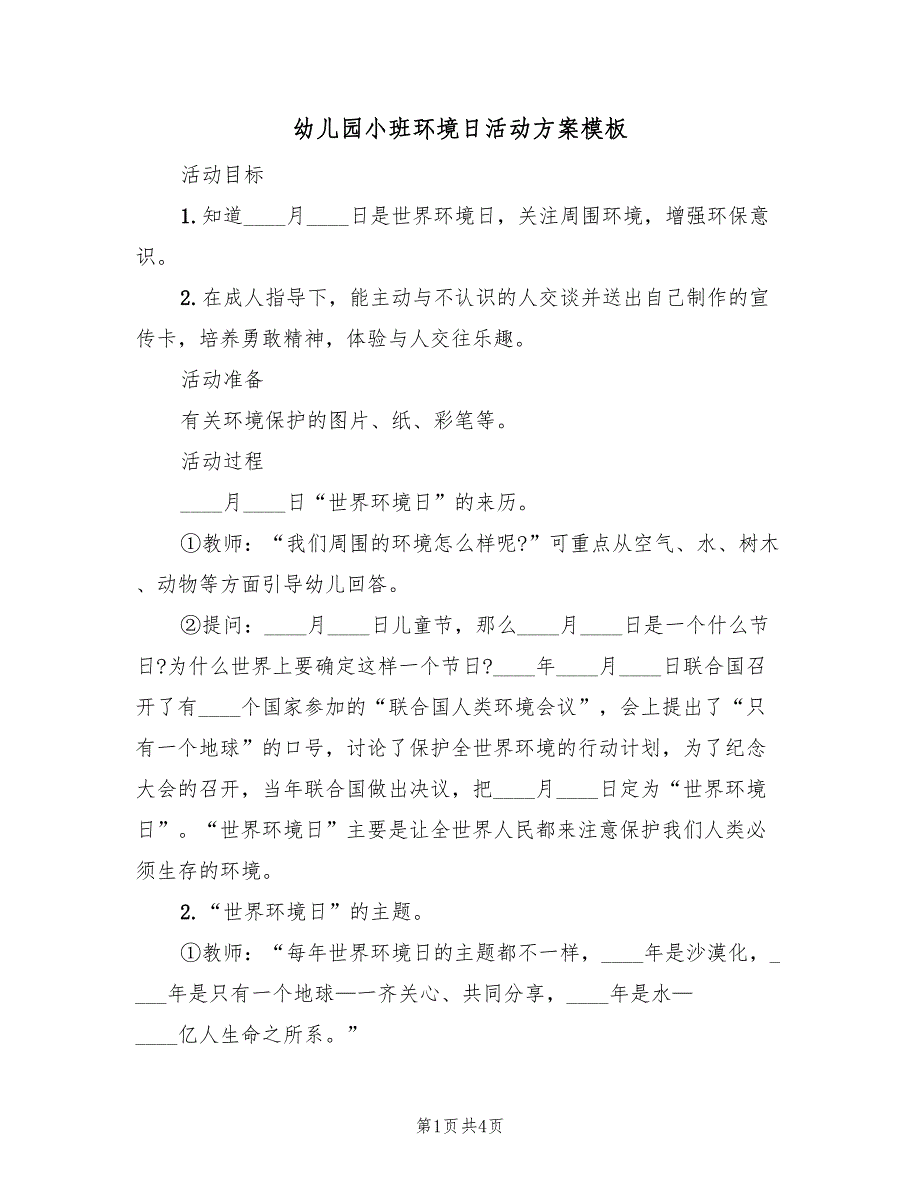 幼儿园小班环境日活动方案模板
活动目标
1. 知道____月____日是世界环境日，关注周围环境，增强环保意
识。
2. 在成人指导下，能主动与不认识的人交谈并送出自己制作的宣
传卡，培养勇敢精神，体验与人交往乐趣。
活动准备
有关环境保护的图片、纸、彩笔等。
活动过程
____月____日“世界环境日”的来历。
①教师：“我们周围的环境怎么样呢?”可重点从空气、水、树木
、动物等方面引导幼儿回答。
②提问：____月____日儿童节，那么____月____日是一个什么节
日?为什么世界上要确定这样一个节日?____年____月____日联合国召
开了有____个国家参加的“联合国人类环境会议”，会上提出了“只
有一个地球”的口号，讨论了保护全世界环境的行动计划，为了纪念
大会的召开，当年联合国做出决议，把____月____日定为“世界环境
日”。“世界环境日”主要是让全世界人民都来注意保护我们人类必
须生存的环境。
2. “世界环境日”的主题。
①教师：“每年世界环境日的主题都不一样，____年是沙漠化，_
___年是只有一个地球—一齐关心、共同分享，____年是水—
____亿人生命之所系。”
第1页共4页